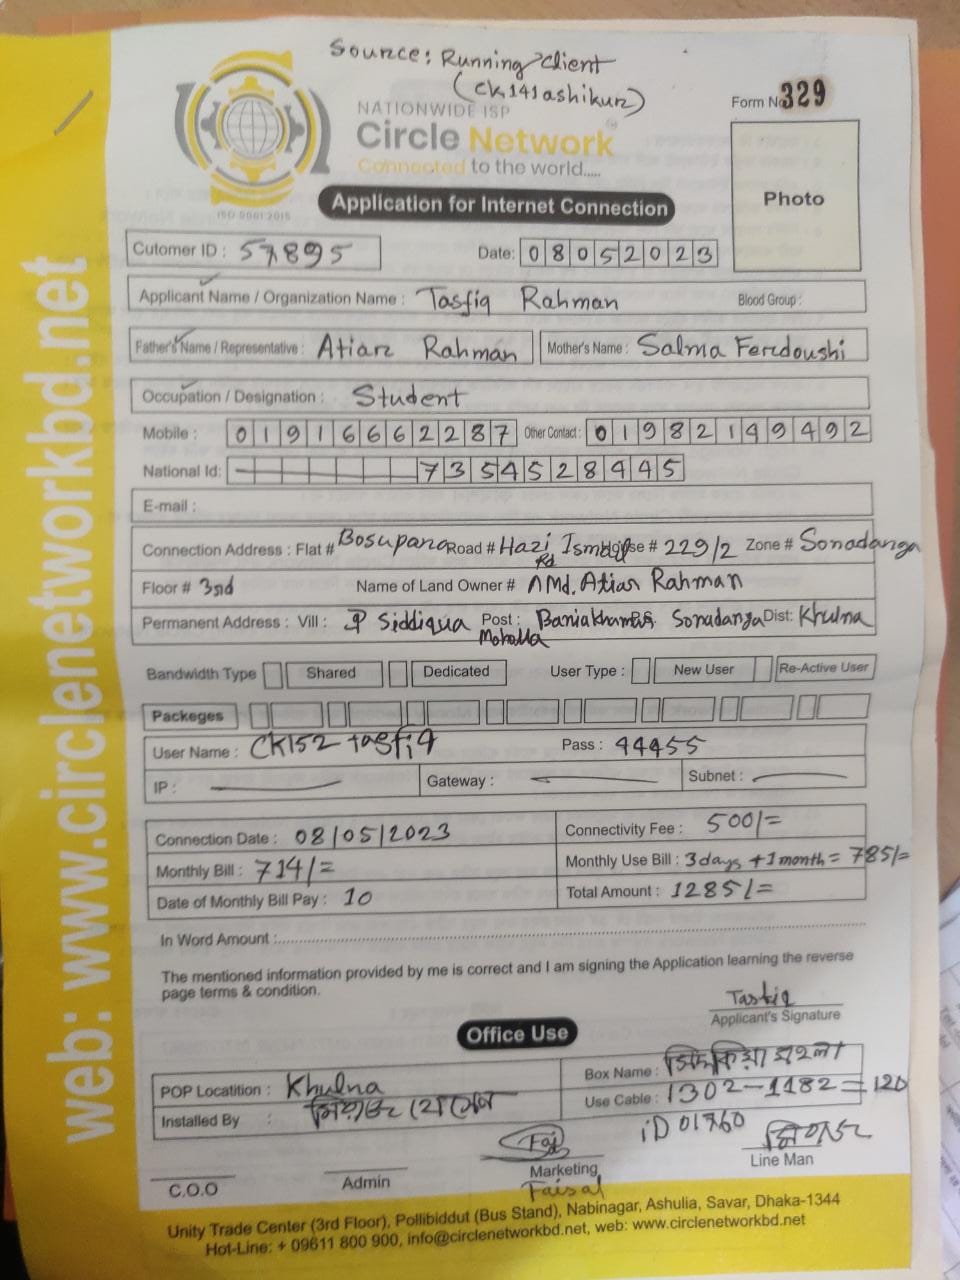 Source: Running Client
(ck141ashikur)
NATIONWIDE ISP
Form No 329
Circle Network
Connected to the world.....
ISO 9001:2015
Photo
Application for Internet Connection
Cutomer ID : 57895 Date: 08052023
Applicant Name / Organization Name : Tasfiq Rahman Blood Group :
Father's Name / Representative : Atiar Rahman Mother's Name : Salma Ferdoushi
Occupation / Designation : Student
Mobile : 01916662287 Other Contact : 01982149492
National Id: 7354528945
E-mail :
Connection Address : Flat # Bosupara Road # Hazi Ismail Rd House # 229/2 Zone # Sonadanga
Floor # 3rd Name of Land Owner # Md. Atiar Rahman
Permanent Address : Vill : Siddiqua Moholla Post : Baniakhamar Sonadanga Dist: Khulna
Bandwidth Type Shared Dedicated User Type : New User Re-Active User
Packeges
User Name : CK152 tasfiq Pass : 44455
IP : Gateway : Subnet :
Connection Date : 08/05/2023 Connectivity Fee : 500/=
Monthly Bill : 714/= Monthly Use Bill : 3 days + 1 month = 785/=
Date of Monthly Bill Pay : 10 Total Amount : 1285/=
In Word Amount :
The mentioned information provided by me is correct and I am signing the Application learning the reverse
page terms & condition.
Tasfiq
Applicant's Signature
Office Use
POP Locatition : Khulna Box Name : সিদ্দিকিয়া মহল্লা
Installed By : Use Cable : 1302-1182=120
ID 01760
C.O.O Admin Marketing Line Man
Faisal
Unity Trade Center (3rd Floor), Pollibiddut (Bus Stand), Nabinagar, Ashulia, Savar, Dhaka-1344
Hot-Line: + 09611 800 900, info@circlenetworkbd.net, web: www.circlenetworkbd.net
web: www.circlenetworkbd.net